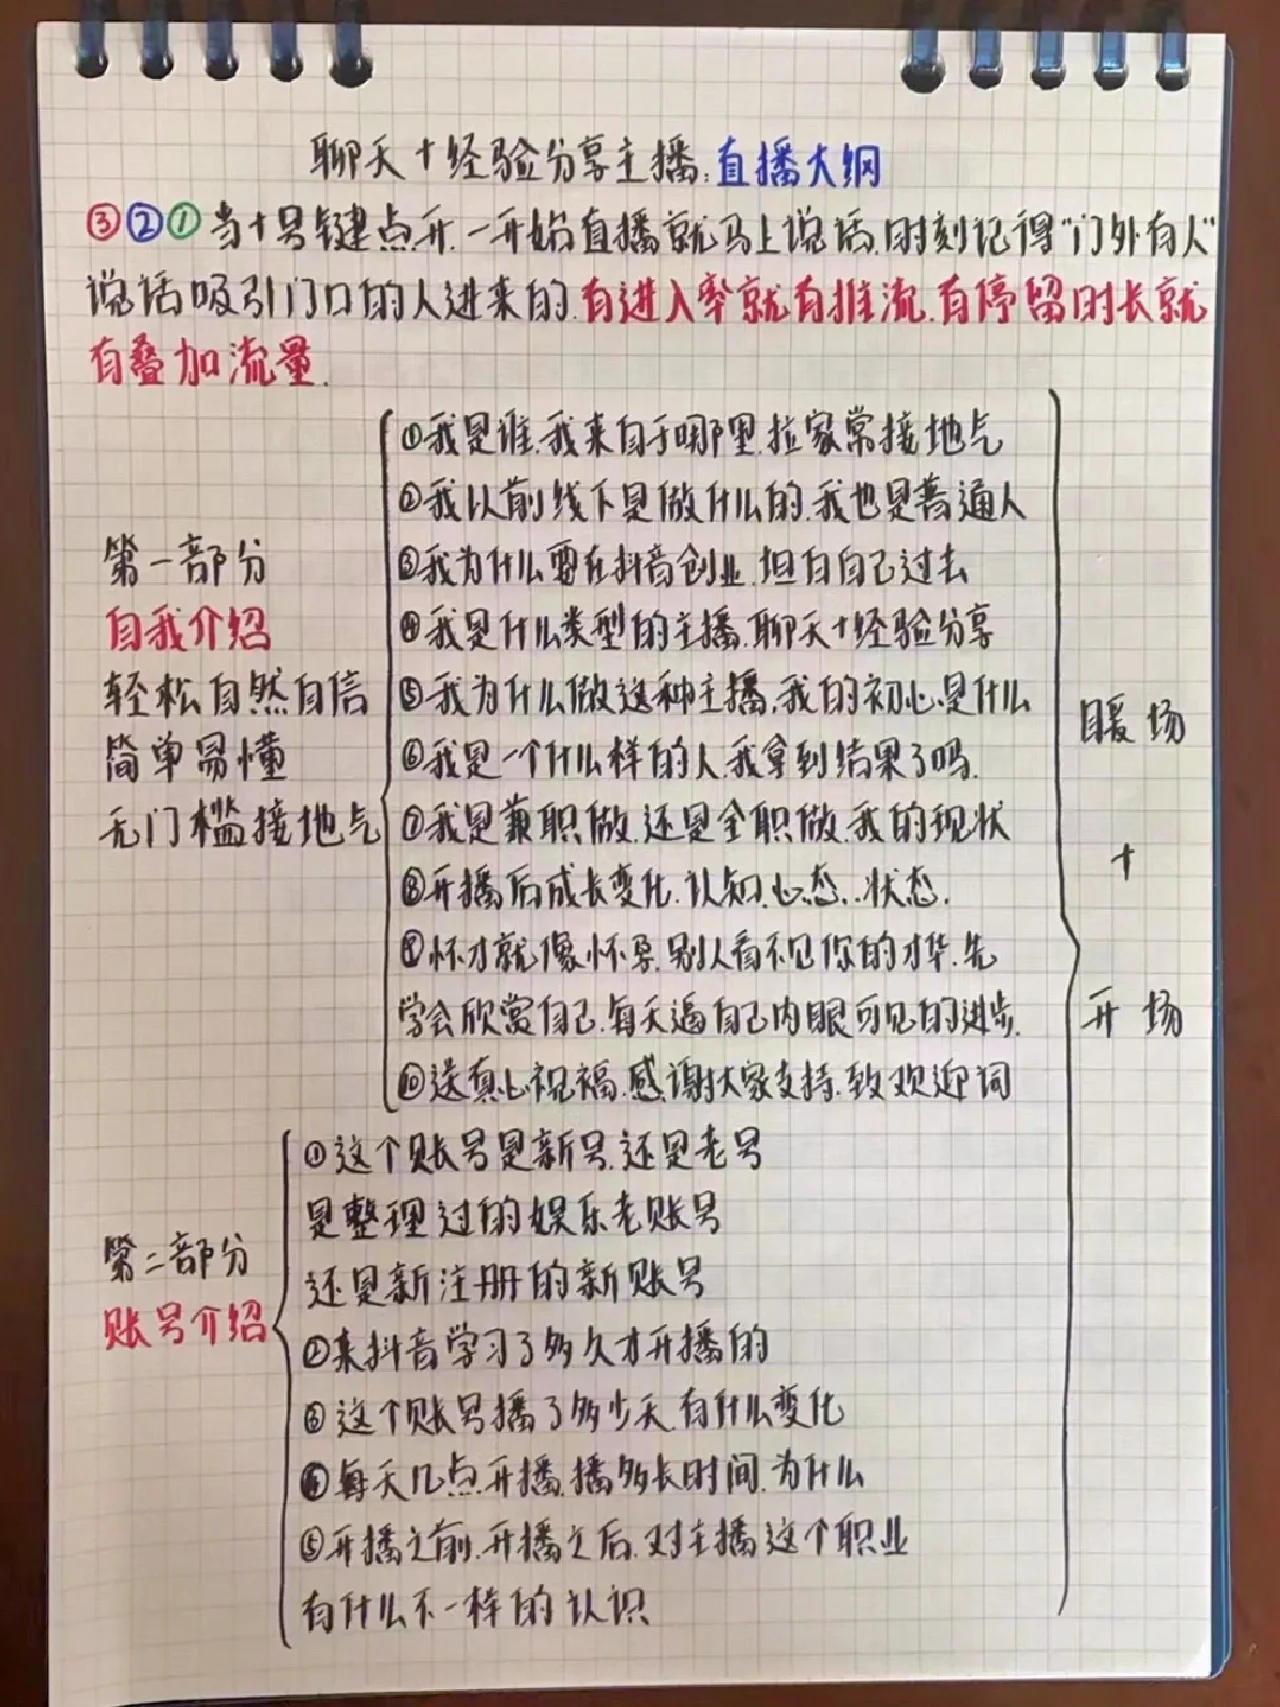 聊天+经验分享主播:直播大纲
③②①当十号键点开.一开始直播就马上说话.时刻记得"门外有人"
说话吸引门口的人进来的.有进入率就有推流.有停留时长就
有叠加流量.
第一部分
自我介绍
轻松自然自信
简单易懂
无门槛接地气
①我是谁.我来自于哪里.拉家常接地气
②我以前线下是做什么的.我也是普通人
③我为什么要在抖音创业.坦白自己过去
④我是什么类型的主播.聊天+经验分享
⑤我为什么做这种主播.我的初心是什么
⑥我是一个什么样的人.我拿到结果了吗.
⑦我是兼职做.还是全职做.我的现状
⑧开播后成长变化.认知.心态..状态.
⑨怀才就像怀孕.别人看不见你的才华.先
学会欣赏自己.每天逼自己内眼可见的进步.
⑩送真心祝福.感谢大家支持.致欢迎词
暖场
+
开场
第二部分
账号介绍
①这个账号是新号.还是老号
是整理过的娱乐老账号
还是新注册的新账号
②来抖音学习了多久才开播的
③这个账号播了多少天.有什么变化
④每天几点开播.播多长时间.为什么
⑤开播之前.开播之后.对主播这个职业
有什么不一样的认识